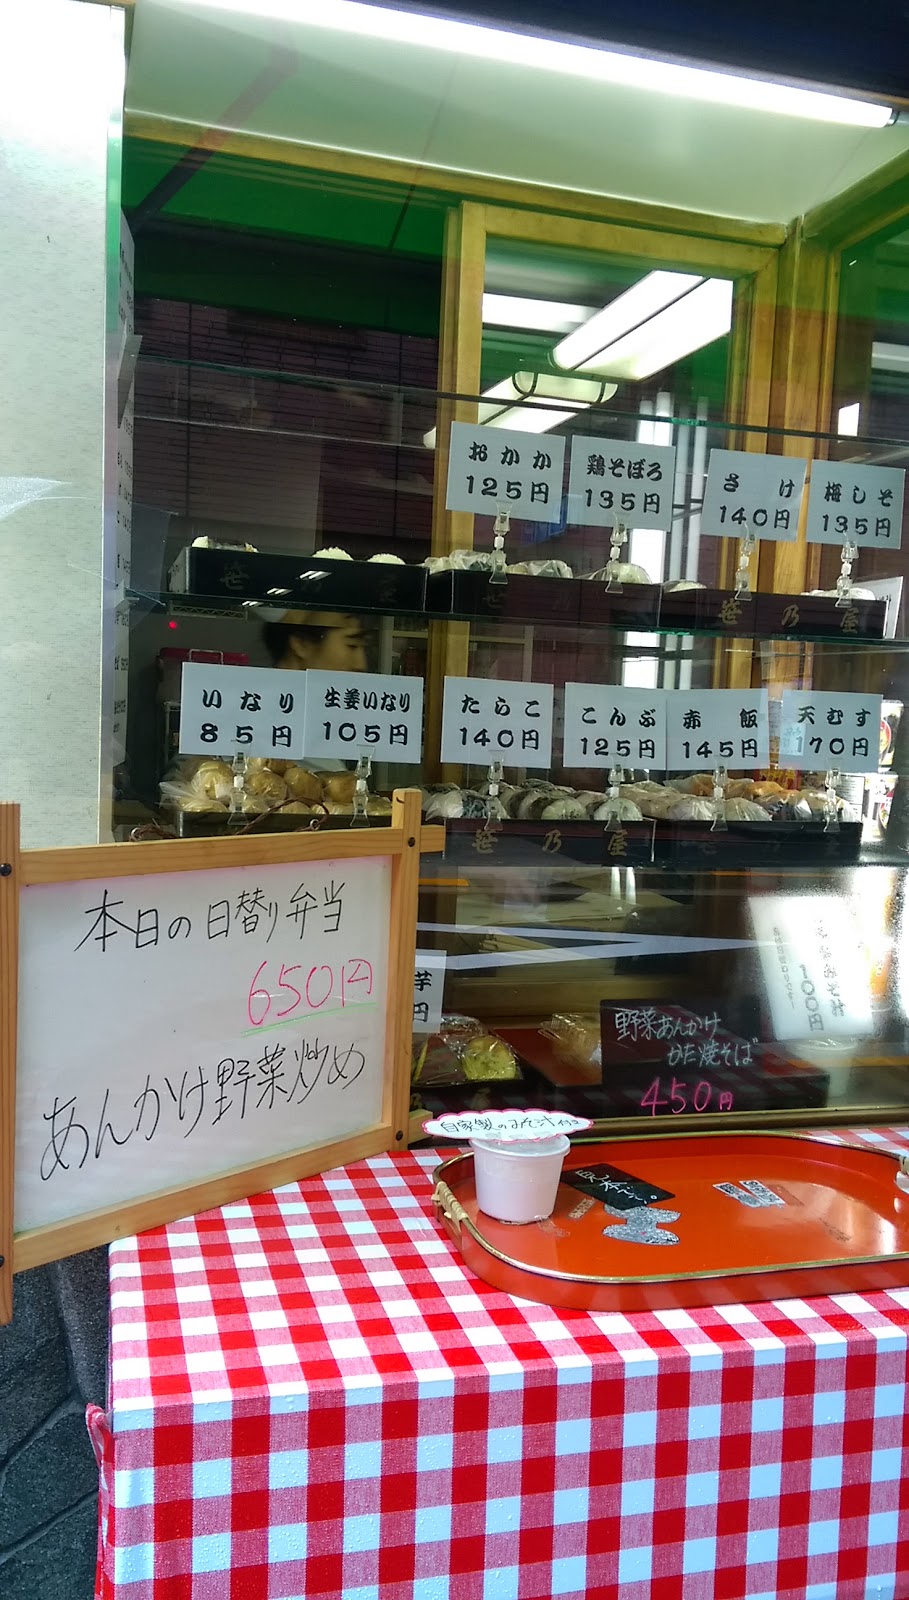 おかか
125円
鶏そぼろ
135円
さけ
140円
梅しそ
135円
笹乃屋
笹乃屋
いなり
85円
生姜いなり
105円
たらこ
140円
こんぶ
125円
赤飯
145円
天むす
170円
笹乃屋
本日の日替り弁当
650円
あんかけ野菜炒め
芋
円
100円
野菜あんかけ
かた焼そば
450円
自家製のみそ汁